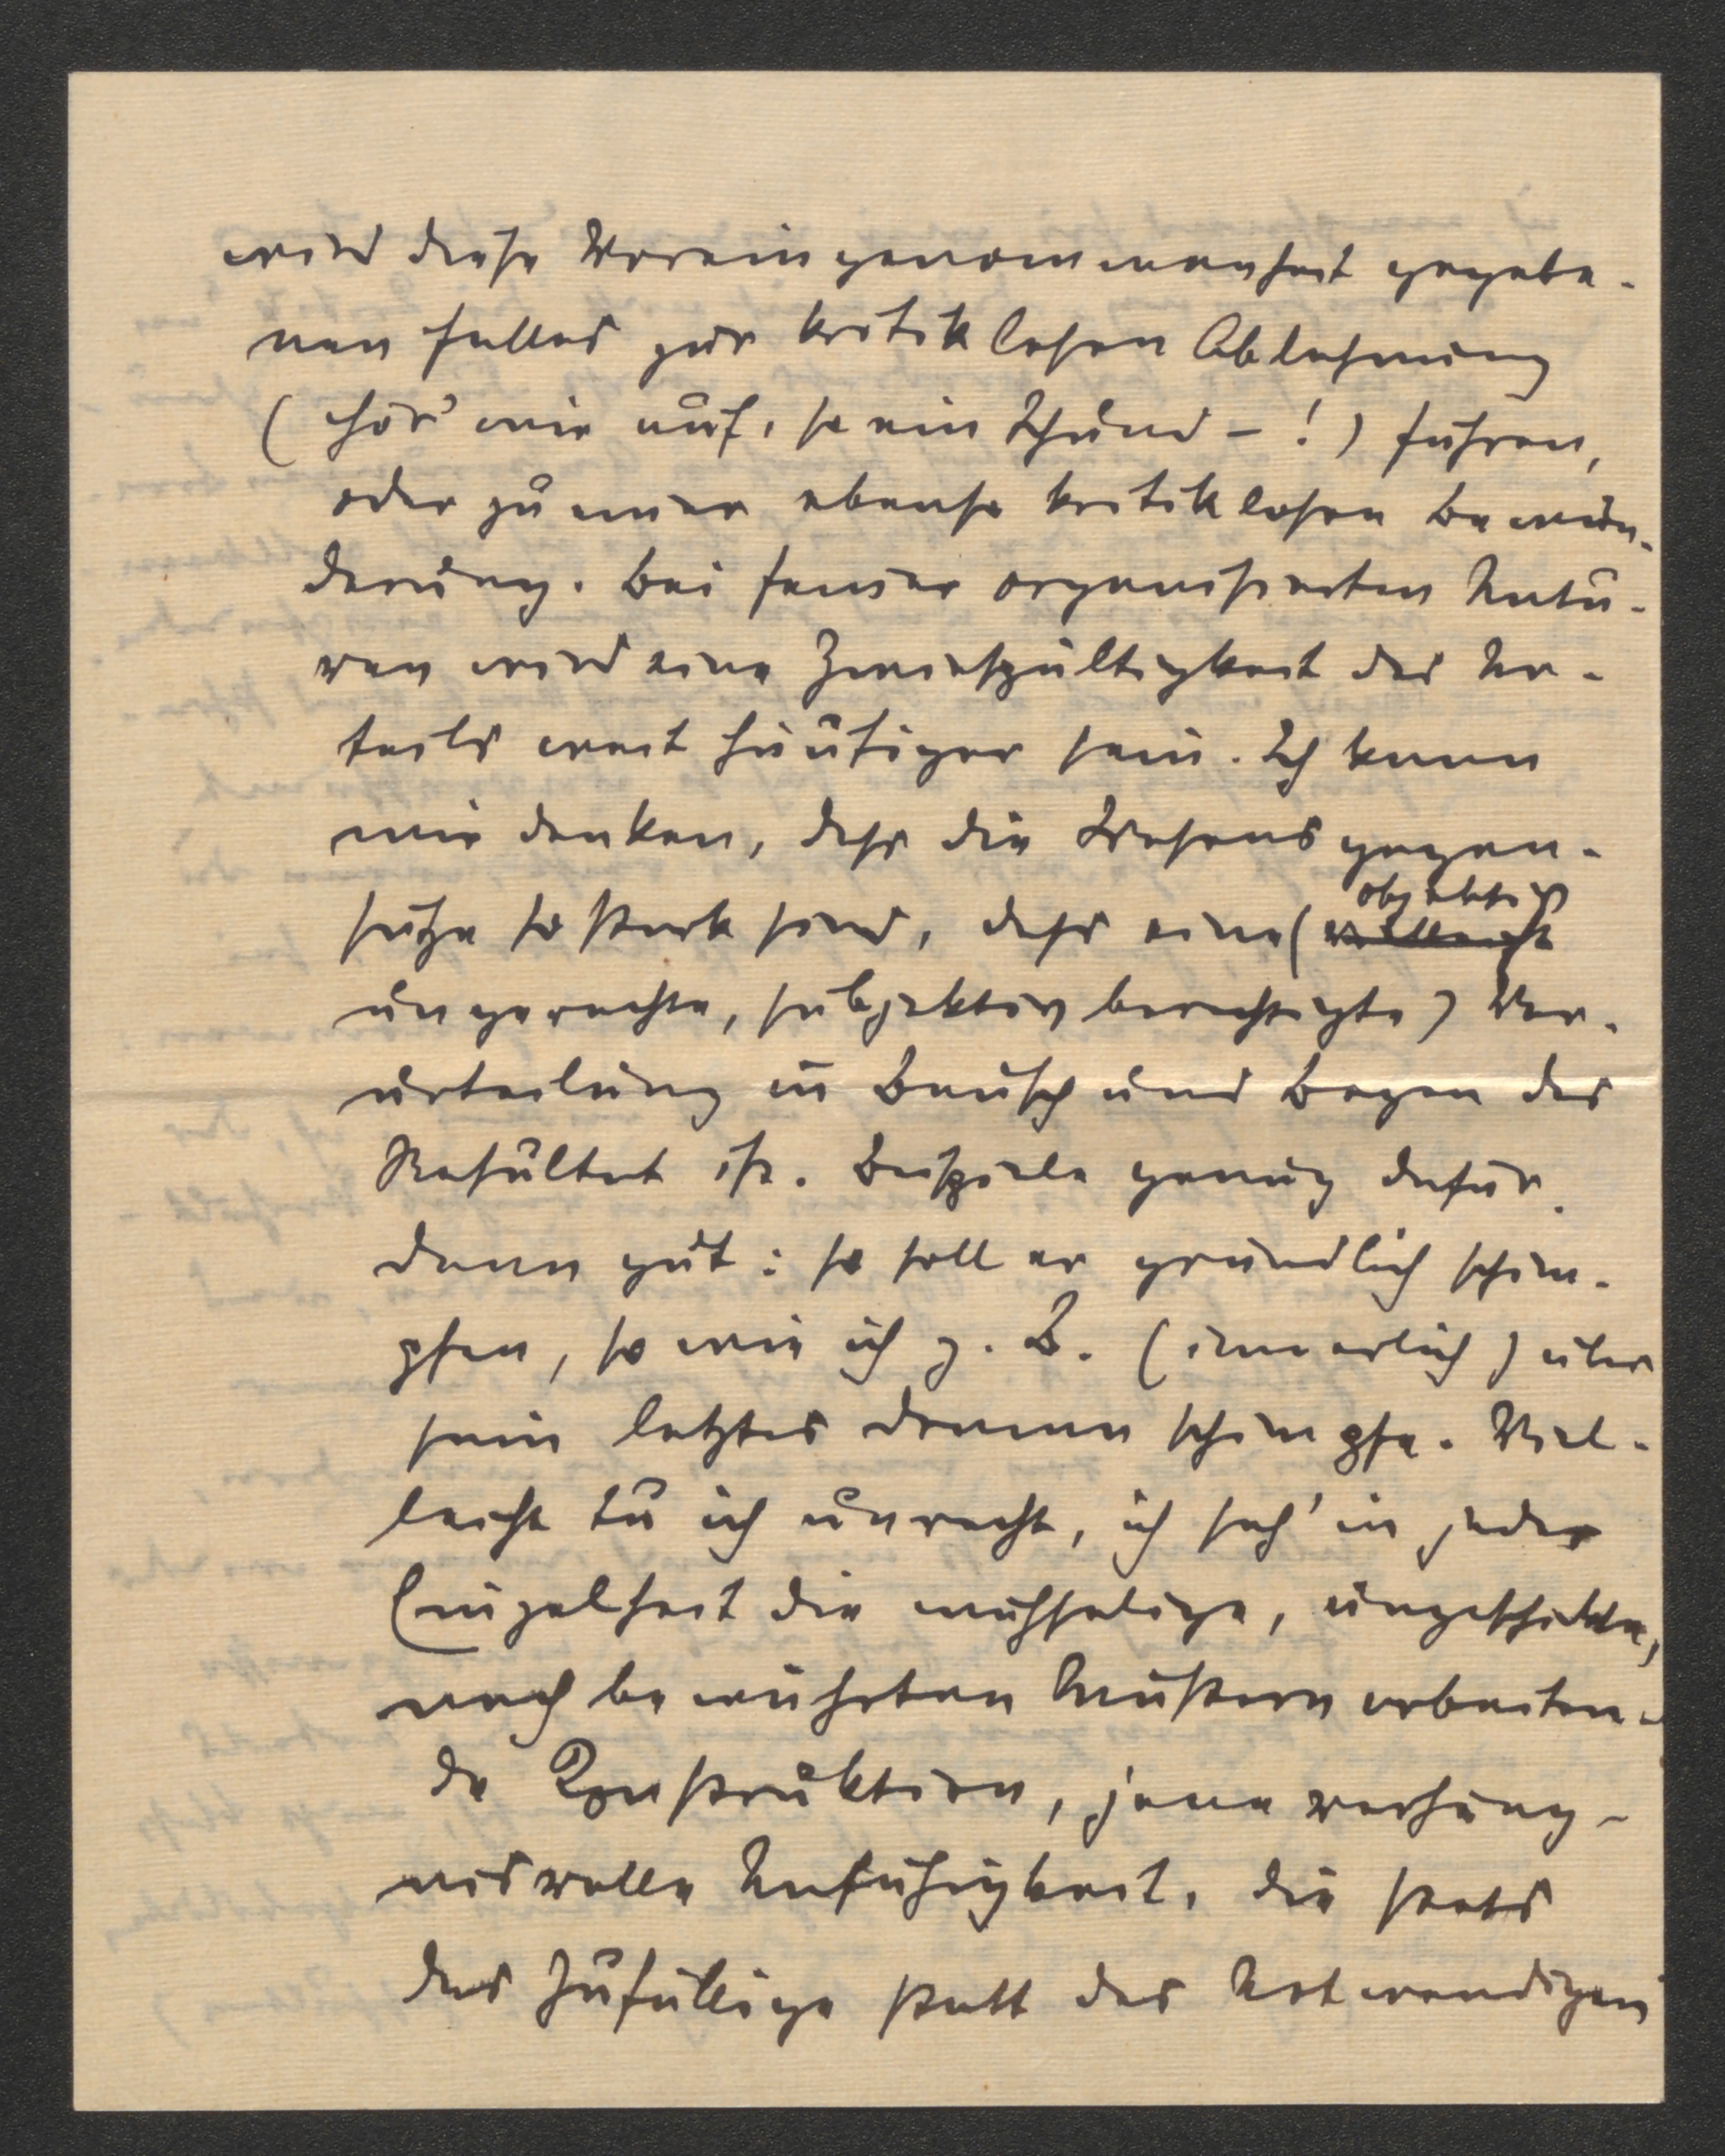 wird diese Voreingenommenheit gegebe-
nen Falles zur kritiklosen Ablehnung
(hör' mir auf, so ein Schund - !) führen,
oder zu einer ebenso kritiklosen Bewun-
derung. Bei feiner organisierten Natu-
ren wird eine Zwiespältigkeit des Ur-
teils weit häufiger sein. Ich kann
mir denken, dass die Wesensgegen-
objektiv
sätze so stark sind, dass eine (vielleicht
ungerechte, subjektiv berechtigte) Ver-
urteilung in Bausch und Bogen das
Resultat ist. Beispiele genug dafür.
Dann gut: so soll er gründlich schim-
pfen, so wie ich z. B. (innerlich) über
sein letztes Drama schimpfe. Viel-
leicht tu ich unrecht, ich seh' in jeder
Einzelheit die mühselige, ungeschickte,
nach bewährten Mustern arbeiten-
de Konstruktion, jene verhäng-
nisvolle Unfähigkeit, die stets
das Zufällige statt des Notwendigen